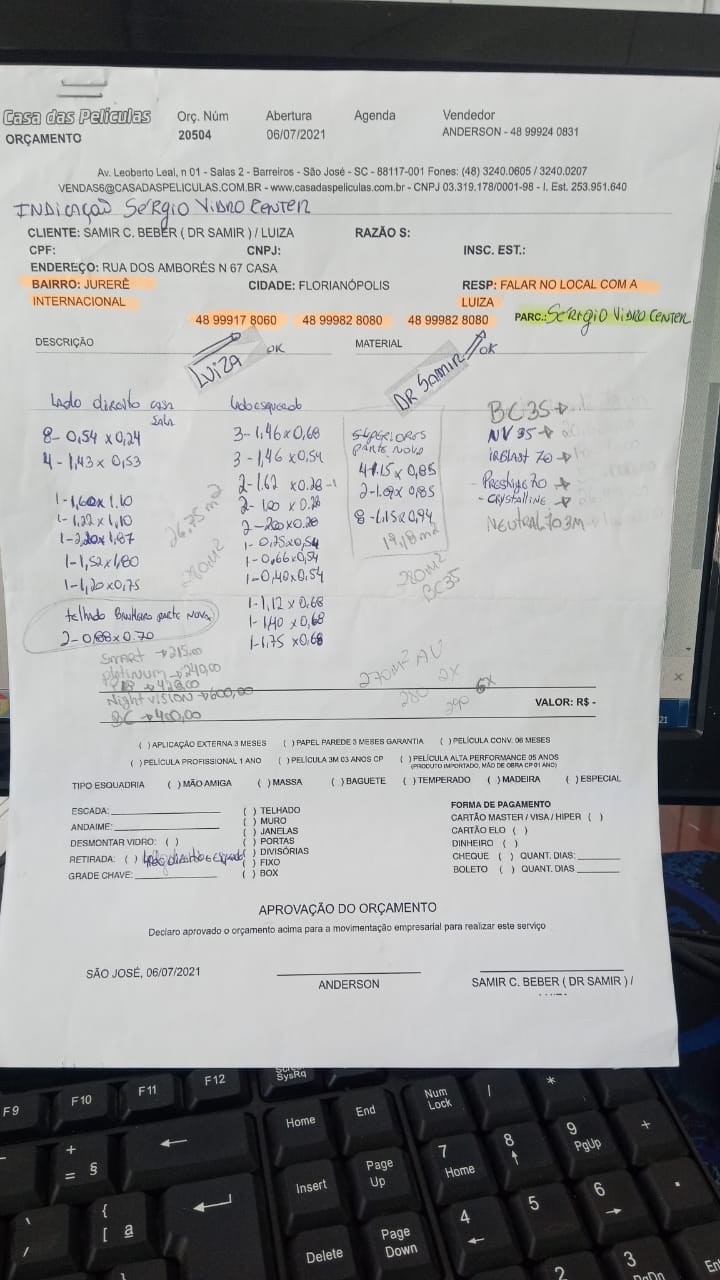 Casa das Películas
ORÇAMENTO
Orç. Núm
20504
Abertura
06/07/2021
Agenda
Vendedor
ANDERSON - 48 99924 0831
Av. Leoberto Leal, n 01 - Salas 2 - Barreiros - São José - SC - 88117-001 Fones: (48) 3240.0605 / 3240.0207
VENDAS6@CASADASPELICULAS.COM.BR - www.casadaspeliculas.com.br - CNPJ 03.319.178/0001-98 - I. Est. 253.951.640
INDICAÇÃO SÉRGIO VIDRO CENTER
CLIENTE: SAMIR C. BEBER ( DR SAMIR ) / LUIZA RAZÃO S:
CPF: CNPJ: INSC. EST.:
ENDEREÇO: RUA DOS AMBORÉS N 67 CASA
BAIRRO: JURERÊ INTERNACIONAL
CIDADE: FLORIANÓPOLIS
RESP: FALAR NO LOCAL COM A LUIZA
48 99917 8060 48 99982 8080 48 99982 8080 PARC.: SÉRGIO VIDRO CENTER
DESCRIÇÃO MATERIAL
LUIZA OK
DR SAMIR OK
Lado direito casa
Sala
8- 0,54 x 0,24
4 - 1,43 x 0,53
1- 1,60 x 1,10
1- 1,22 x 1,10
1- 2,20 x 1,87
1- 1,52 x 1,80
1- 1,20 x 0,75
telhado Banheiro parte Nova
2- 0,88 x 0.70
26,75 m2
280m2
Lado esquerdo
3- 1,46 x 0,68
3 - 1,46 x 0,54
2- 1.62 x 0.28 -1
2- 1.00 x 0.28
2- 200 x 0.28
1- 0,75 x 0,54
1- 0,66 x 0,54
1- 0,40 x 0,54
1- 1,12 x 0,68
1- 1,40 x 0,68
1- 1,75 x 0,68
SUPERIORES
PARTE NOVA
4 1.15 x 0,85
2- 1.09 x 0,85
8 - 1,15 x 0,94
19,18 m2
280m2
BC35
BC35
NV 35
IRBLAST 70
Prestige 70
- Crystalline
NEUTRAL 70 3M
SMART 215,00
Platinum 240,00
428,00
Night VISION 600,00
BC 400,00
270m2 AV
280 2X
290 6X
VALOR: R$ -
( ) APLICAÇÃO EXTERNA 3 MESES ( ) PAPEL PAREDE 3 MESES GARANTIA ( ) PELÍCULA CONV. 06 MESES
( ) PELÍCULA PROFISSIONAL 1 ANO ( ) PELÍCULA 3M 03 ANOS CP ( ) PELÍCULA ALTA PERFORMANCE 05 ANOS
(PRODUTO IMPORTADO, MÃO DE OBRA CP 01 ANO)
TIPO ESQUADRIA ( ) MÃO AMIGA ( ) MASSA ( ) BAGUETE ( ) TEMPERADO ( ) MADEIRA ( ) ESPECIAL
ESCADA:
ANDAIME:
DESMONTAR VIDRO: ( )
RETIRADA: ( ) Lado direito e esquerdo
GRADE CHAVE:
( ) TELHADO
( ) MURO
( ) JANELAS
( ) PORTAS
( ) DIVISÓRIAS
( ) FIXO
( ) BOX
FORMA DE PAGAMENTO
CARTÃO MASTER / VISA / HIPER ( )
CARTÃO ELO ( )
DINHEIRO ( )
CHEQUE ( ) QUANT. DIAS:
BOLETO ( ) QUANT. DIAS
APROVAÇÃO DO ORÇAMENTO
Declaro aprovado o orçamento acima para a movimentação empresarial para realizar este serviço
SÃO JOSÉ, 06/07/2021
ANDERSON
SAMIR C. BEBER ( DR SAMIR ) /
21
F9
F10
F11
F12
SysRq
Home
End
Num Lock
/
*
Insert
Page Up
7 Home
8
9 PgUp
+
Delete
Page Down
4
5
6
2
3
+
= §
{
[ ª